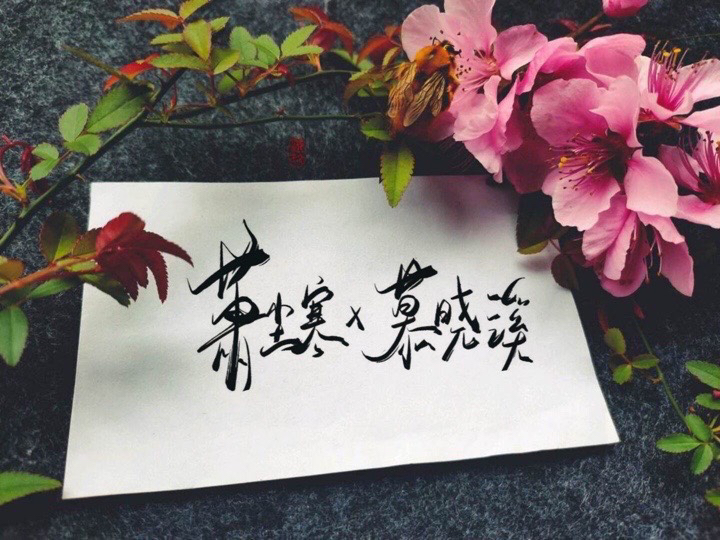 萧尘寒×慕晓溪